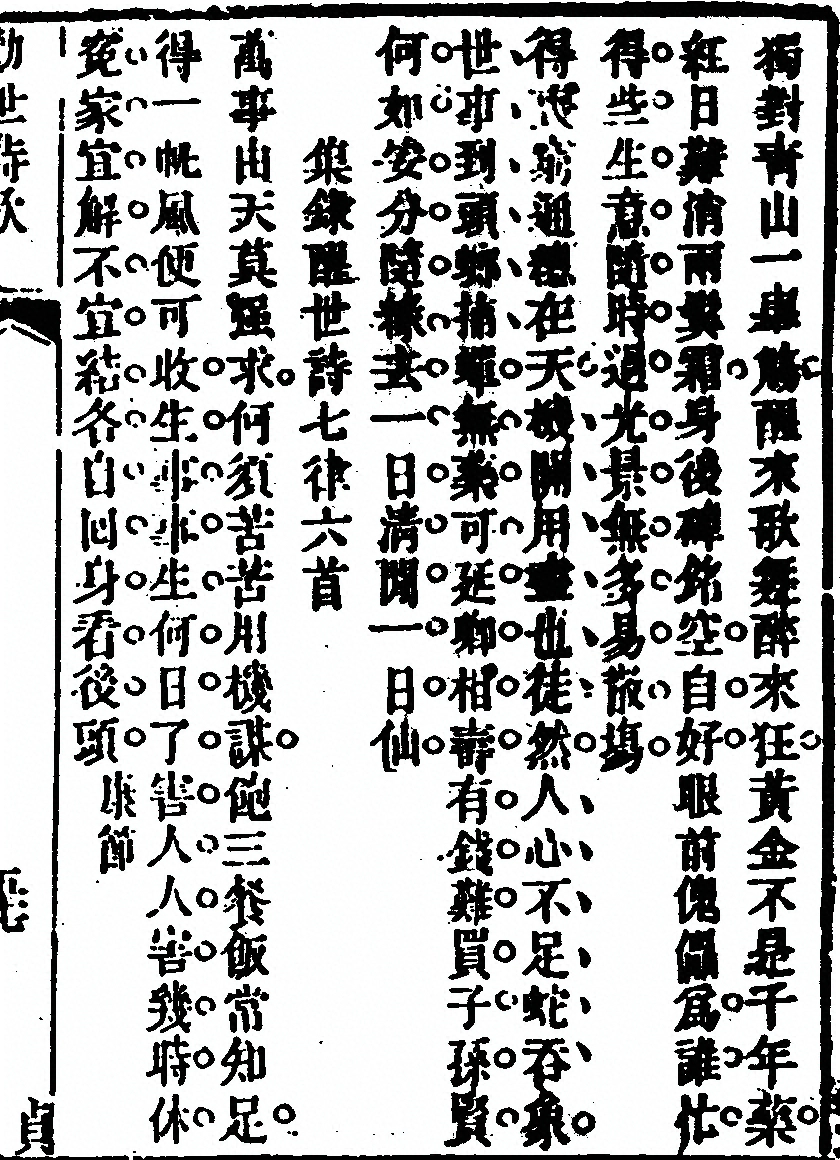 獨對青山一舉觴醒來歌舞醉來狂黃金不是千年藥
紅日難消兩鬢霜身後碑銘空自好眼前傀儡爲誰忙
得些生意隨時過光景無多易散場
得失窮通總在天機關用盡也徒然人心不足蛇吞象
世事到頭螂捕蟬無藥可延卿相壽有錢難買子孫賢
何如安分隨緣去一日清閒一日仙
集錄醒世詩七律六首
萬事由天莫强求何須苦苦用機謀飽三餐飯常知足
得一帆風便可收生事事生何日了害人人害幾時休
寃家宜解不宜結各自回身看後頭 康節
勸世詩歌
貞